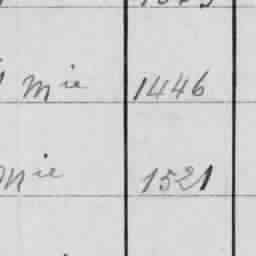 Mie 1446
Mie 1521